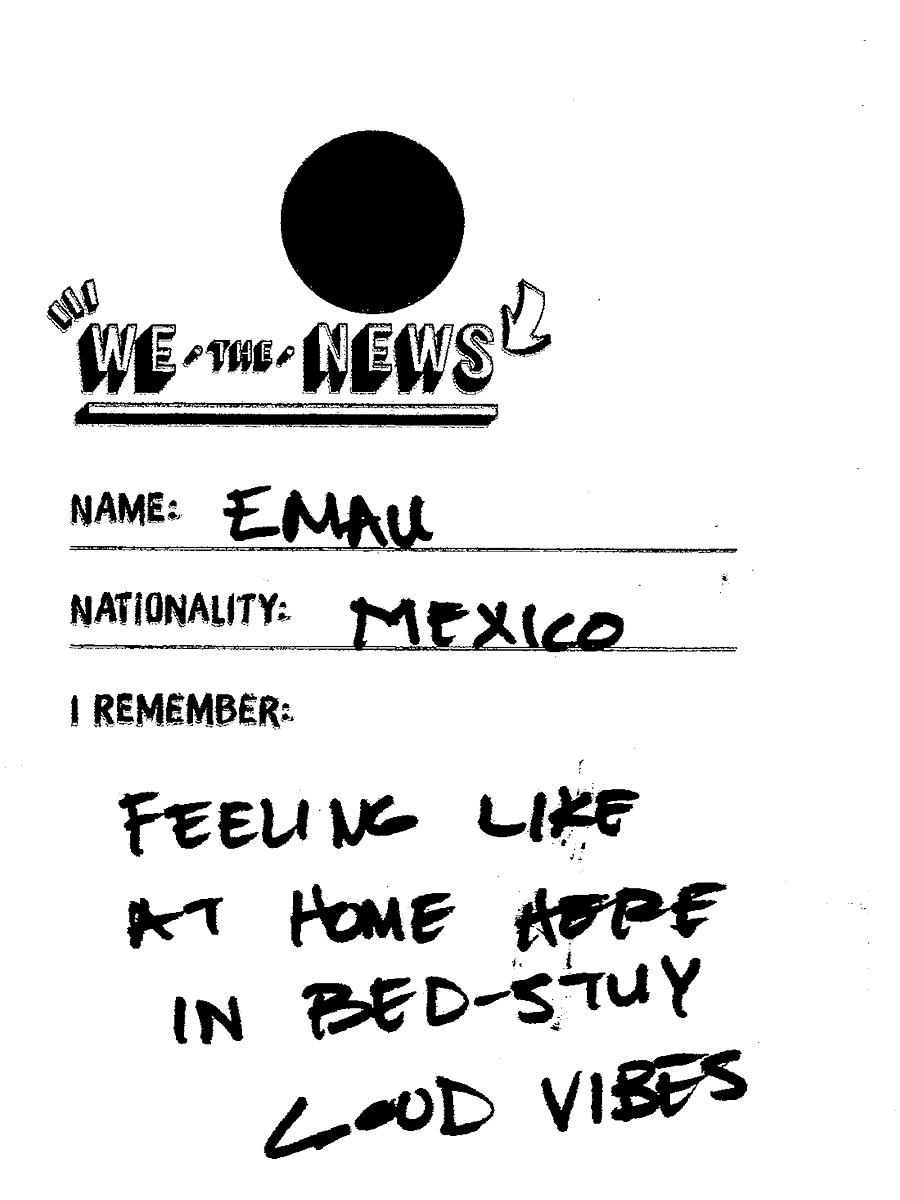 WE • THE • NEWS
NAME: EMAU
NATIONALITY: MEXICO
I REMEMBER:
FEELING LIKE
AT HOME HERE
IN BED-STUY
LOUD VIBES